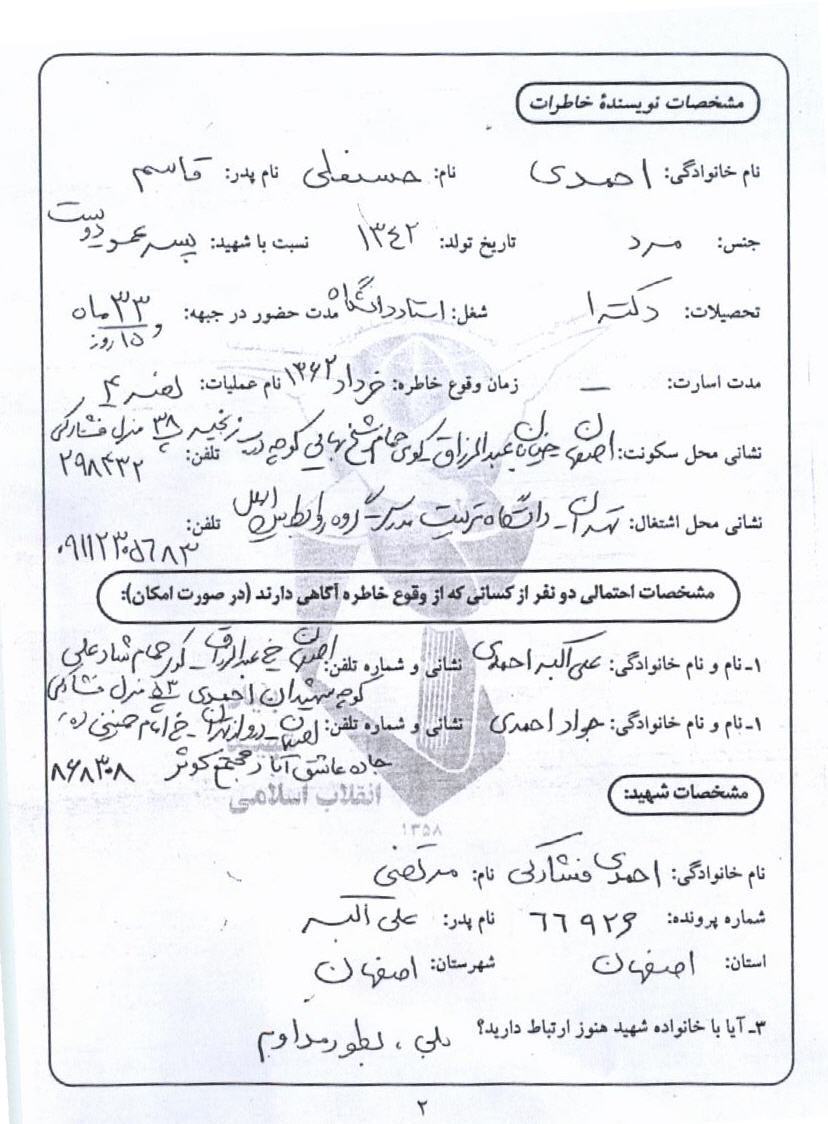 مشخصات نویسندهٔ خاطرات
نام خانوادگی: احمدی نام: حسنعلی نام پدر: قاسم
جنس: مرد تاریخ تولد: ۱۳۴۲ نسبت با شهید: پسر عمو، دوست
تحصیلات: دکترا شغل: استاد دانشگاه مدت حضور در جبهه: ۳۳ ماه و ۱۵ روز
مدت اسارت: — زمان وقوع خاطره: خرداد ۱۳۶۲ نام عملیات:
نشانی محل سکونت: اصفهان خیابان عبدالرزاق کوی حمام شیخ بهایی کوچه درب زنجیر پ ۳۸ منزل فشارکی تلفن: ۲۹۸۴۳۲
نشانی محل اشتغال: تهران – دانشگاه تربیت مدرس گروه روابط بین الملل تلفن: ۰۹۱۱۲۳۰۵۶۸۳
مشخصات احتمالی دو نفر از کسانی که از وقوع خاطره آگاهی دارند (در صورت امکان):
۱ـ نام و نام خانوادگی: علی اکبر احمدی نشانی و شماره تلفن: اصفهان خ عبدالرزاق – کوی حمام شاد علی
کوچه شهیدان احمدی پ ۵۳ منزل فشارکی
۱ـ نام و نام خانوادگی: جواد احمدی نشانی و شماره تلفن: اصفهان – دروازه تهران – خ امام خمینی ره،
جاده عاشق آباد مجتمع کوثر ۸۶۸۳۰۸
انقلاب اسلامی
۱۳۵۸
مشخصات شهید:
نام خانوادگی: احمدی فشارکی نام: مرتضی
شماره پرونده: ۶۶۹۲۶ نام پدر: علی اکبر
استان: اصفهان شهرستان: اصفهان
۳ـ آیا با خانواده شهید هنوز ارتباط دارید؟ بلی، بطور مداوم
۲